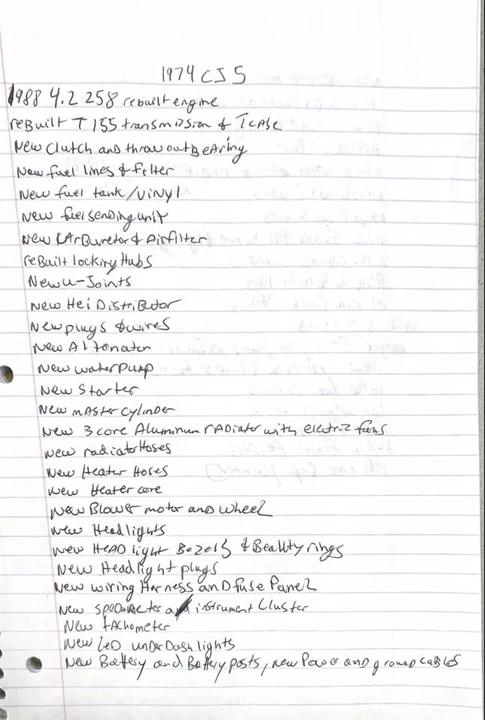 1974 CJ5
1988 4.2 258 rebuilt engine
reBuilt T 155 transmission & Tcase
New Clutch and throw out BeAring
New fuel lines & filter
New fuel tank/vinyl
New fuel sending unit
New KArBuretor & Airfilter
reBuilt locking Hubs
New u-Joints
New Hei Distributor
New plugs & wires
New Altonator
New water pump
New Starter
New mAster cylinder
New 3 core Aluminum rADiator with electric fans
New radiator Hoses
New Heater Hoses
New Heater core
New Blower motor and wheel
New Headlights
New HeAD light Bezels & BeAuty rings
New Headlight plugs
New wiring Harness anD fuse Panel
New speDometer and instrument Cluster
New tAchometer
New LeD under Dash lights
New Battery and Battery posts, new Power and ground cables